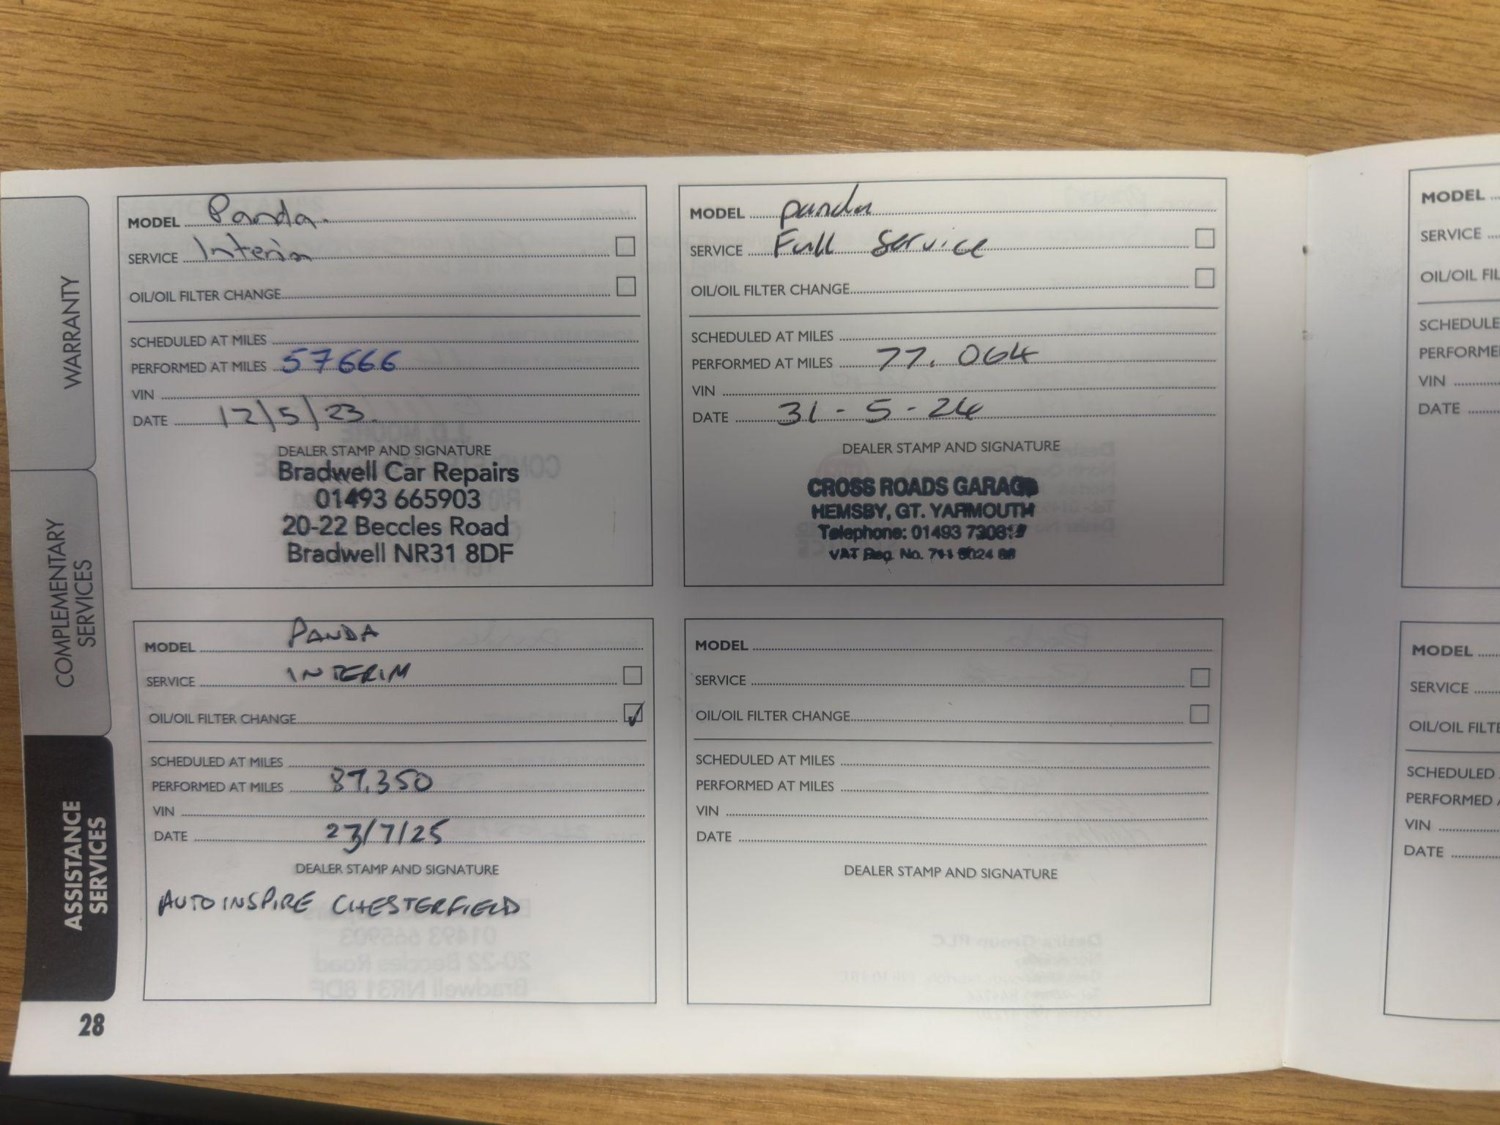 WARRANTY
COMPLEMENTARY
SERVICES
ASSISTANCE
SERVICES
MODEL Panda.
SERVICE Interim
OIL/OIL FILTER CHANGE
SCHEDULED AT MILES
PERFORMED AT MILES 57666
VIN
DATE 12/5/23.
DEALER STAMP AND SIGNATURE
Bradwell Car Repairs
01493 665903
20-22 Beccles Road
Bradwell NR31 8DF
MODEL panda
SERVICE Full Service
OIL/OIL FILTER CHANGE
SCHEDULED AT MILES
PERFORMED AT MILES 77.064
VIN
DATE 31-5-24
DEALER STAMP AND SIGNATURE
CROSS ROADS GARAGE
HEMSBY, GT. YARMOUTH
Telephone: 01493
VAT Reg. No.
MODEL PANDA
SERVICE INTERIM
OIL/OIL FILTER CHANGE ✓
SCHEDULED AT MILES
PERFORMED AT MILES 87,350
VIN
DATE 23/7/25
DEALER STAMP AND SIGNATURE
AUTOINSPIRE CHESTERFIELD
MODEL
SERVICE
OIL/OIL FILTER CHANGE
SCHEDULED AT MILES
PERFORMED AT MILES
VIN
DATE
DEALER STAMP AND SIGNATURE
MODEL
SERVICE
OIL/OIL FIL
SCHEDULE
PERFORME
VIN
DATE
MODEL
SERVICE
OIL/OIL FILTE
SCHEDULED
PERFORMED
VIN
DATE
28